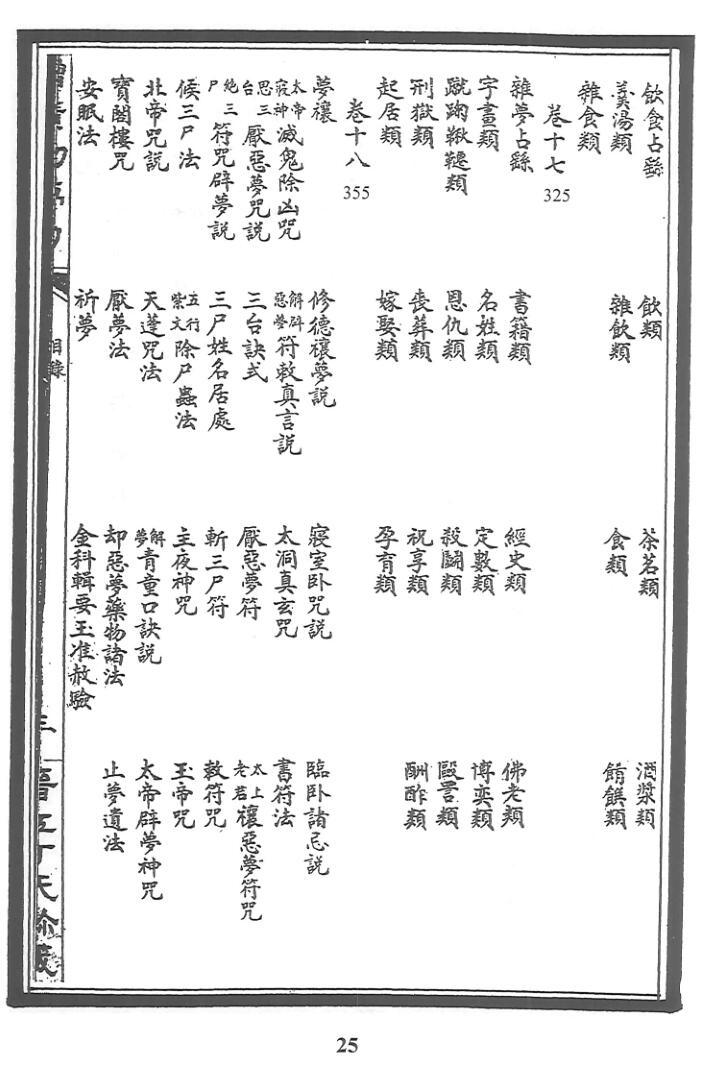 飲食占繇 飲類 茶茗類 酒漿類
羹湯類 雜飲類 食類 餚饌類
雜食類
卷十七 325
雜夢占繇 書籍類 經史類 佛老類
字畫類 名姓類 定數類 博奕類
蹴踘鞦韆類 恩仇類 殺鬭類 毆詈類
刑獄類 喪葬類 祝享類 酬酢類
起居類 嫁娶類 孕育類
卷十八 355
夢禳 修德禳夢説 寢室卧咒説 臨卧諸忌説
太帝寢神滅鬼除凶咒 解辟惡夢符敕真言説 太洞真玄咒 書符法
思三台厭惡夢咒説 三台訣式 厭惡夢符 太上老君禳惡夢符咒
絶三尸符咒辟夢説 三尸姓名居處 斬三尸符 敕符咒
候三尸法 五行紫文除尸蟲法 主夜神咒 玉帝咒
北帝咒説 天蓬咒法 解夢青童口訣説 太帝辟夢神咒
寶閣樓咒 厭夢法 却惡夢藥物諸法 止夢遺法
安眠法 祈夢 金科輯要玉准赦驗
目錄
25